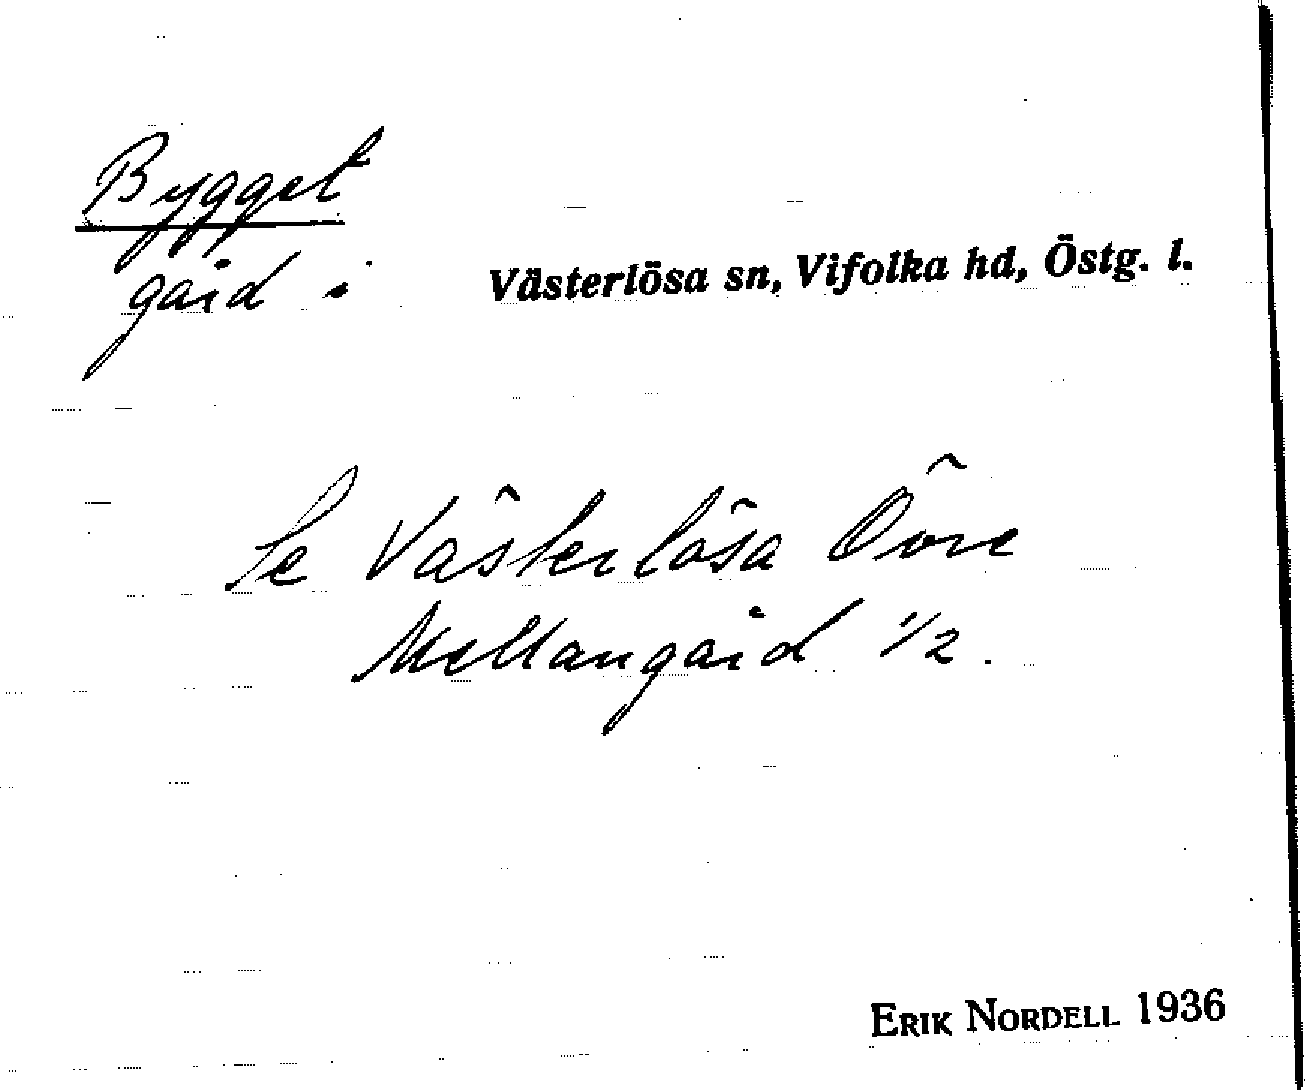 Bygget
gård i Västerlösa sn, Vifolka hd, Östg. l.
Se Västerlösa Övre
Mellangård 1/2.
ERIK NORDELL 1936